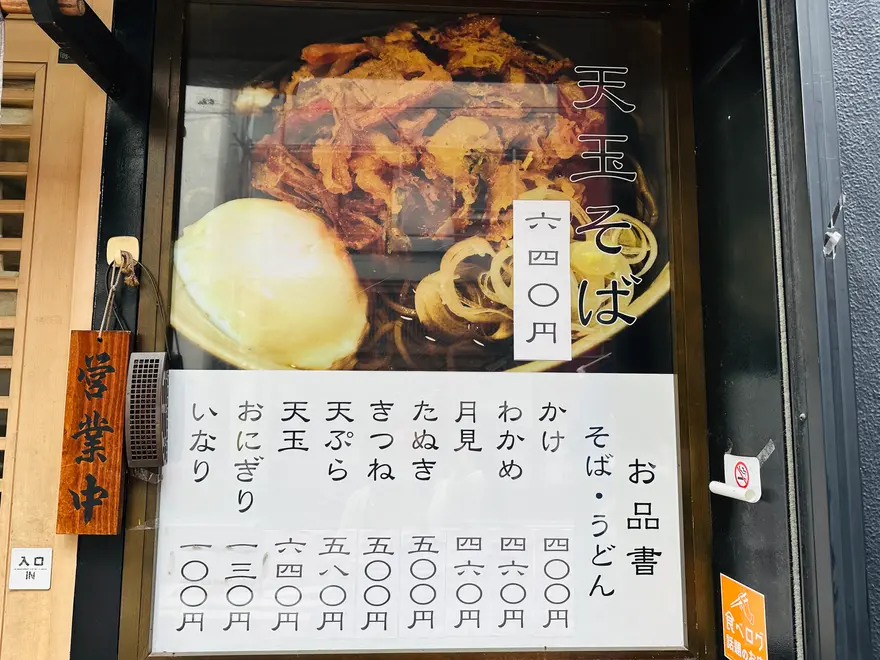 天玉そば
六四〇円
お品書
そば・うどん
かけ 四〇〇円
わかめ 四六〇円
月見 四六〇円
たぬき 五〇〇円
きつね 五〇〇円
天ぷら 五八〇円
天玉 六四〇円
おにぎり 一三〇円
いなり 一〇〇円
営業中
入口
IN
食べログ
話題のお